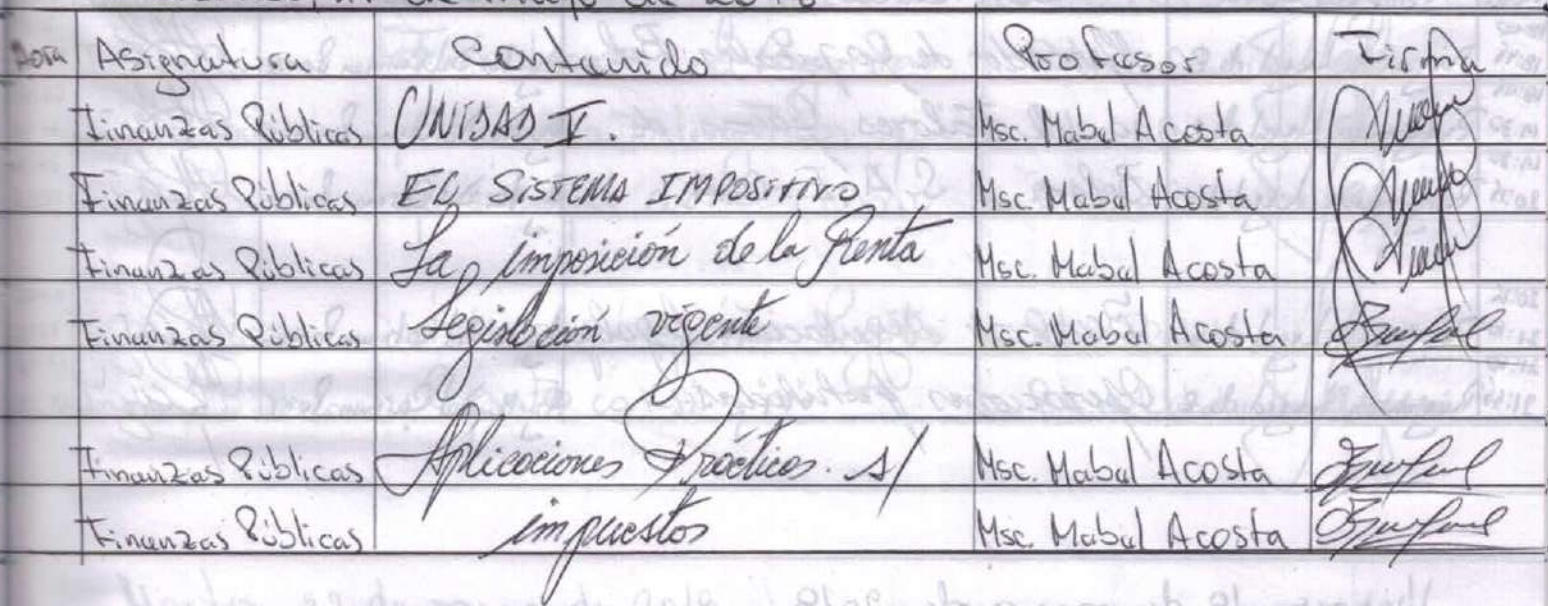 de mayo de 2018
Hora Asignatura Contenido Profesor Firma
Finanzas Públicas UNIDAD V. Msc. Mabel Acosta
Finanzas Públicas EL SISTEMA IMPOSITIVO Msc. Mabel Acosta
Finanzas Públicas La imposición de la Renta Msc. Mabel Acosta
Finanzas Públicas Legislación vigente Msc. Mabel Acosta
Finanzas Públicas Aplicaciones Prácticas s/ Msc. Mabel Acosta
Finanzas Públicas impuestos Msc. Mabel Acosta